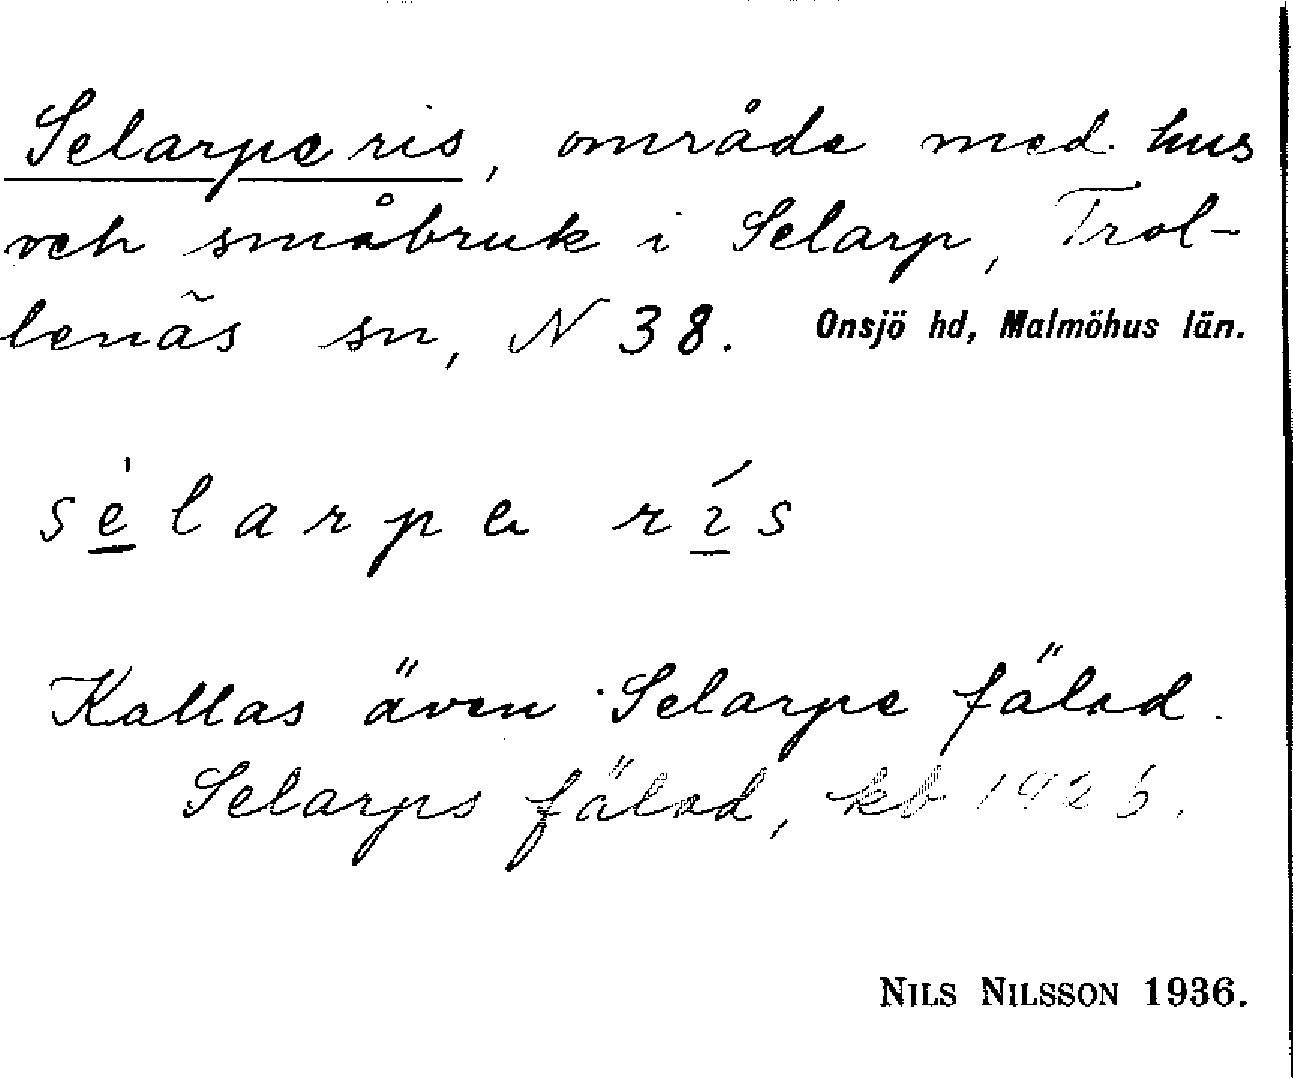 Selarpe ris, område med hus
och småbruk i Selarp, Trol-
lenäs sn, N 38. Onsjö hd, Malmöhus län.
sèlarpa rís
Kallas även Selarpe fälad.
Selarps fälad, kb 1926.
NILS NILSSON 1936.